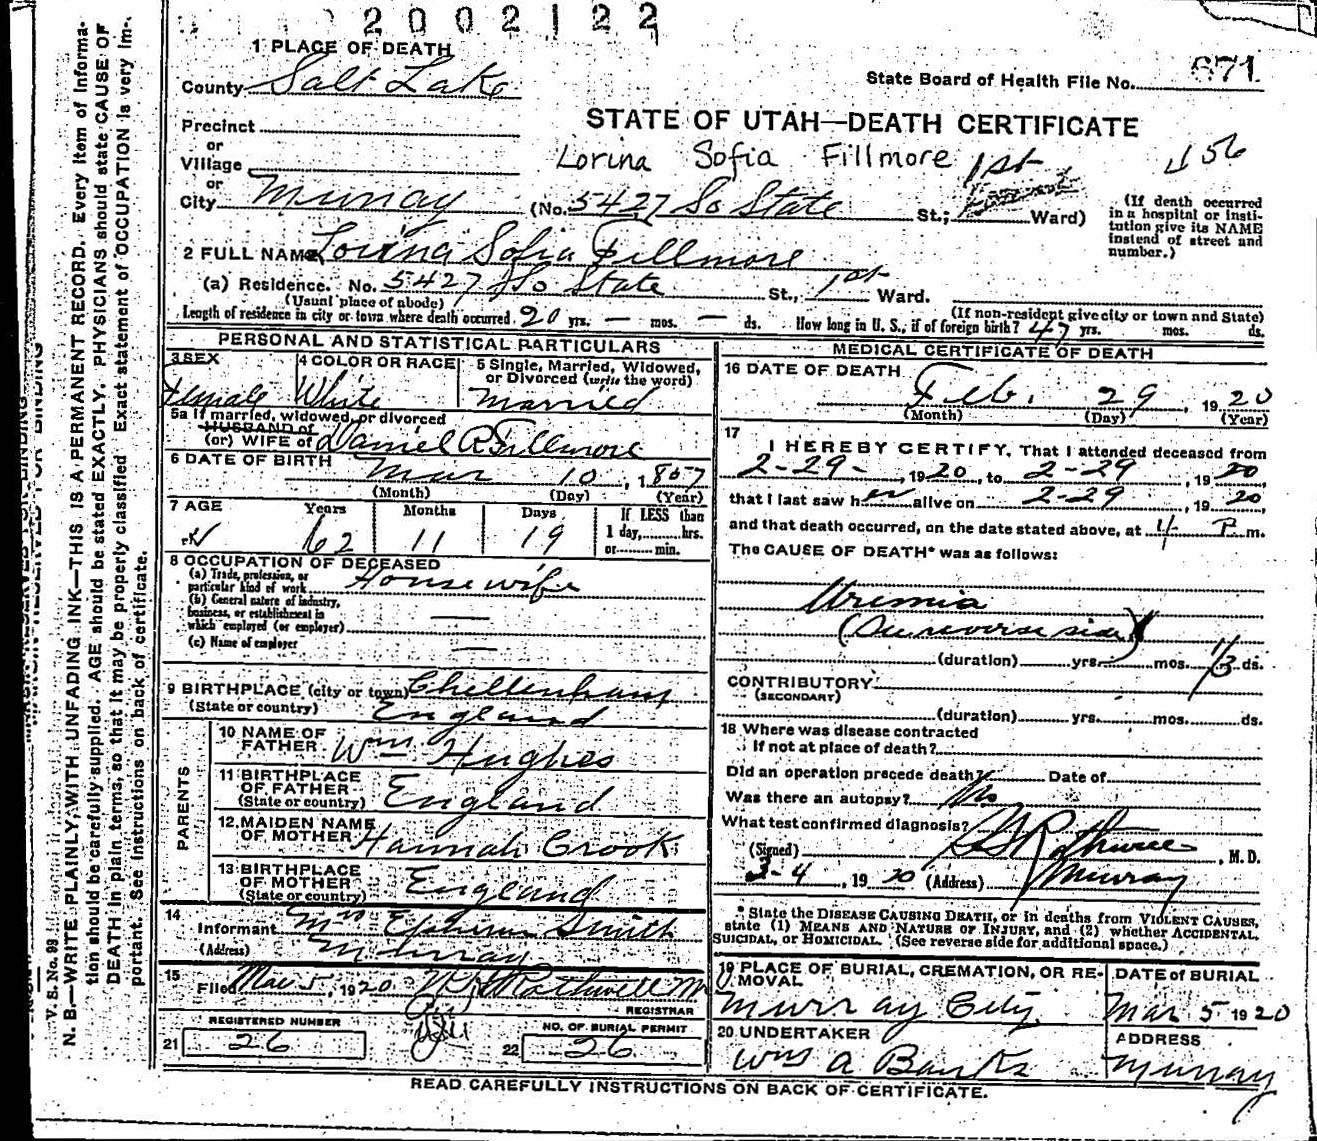 2002122
1 PLACE OF DEATH
County Salt Lake
State Board of Health File No. 671
Precinct
or
Village
or
City Murray
STATE OF UTAH—DEATH CERTIFICATE
Lorina Sofia Fillmore
(No. 5427 So State St.; 1st Ward)
(If death occurred in a hospital or insti-
tution give its NAME
instead of street and
number.)
2 FULL NAME Lorina Sofia Fillmore
(a) Residence. No. 5427 So State St., 1st Ward.
(Usual place of abode)
(If non-resident give city or town and State)
Length of residence in city or town where death occurred 20 yrs. — mos. — ds. How long in U. S., if of foreign birth? 47 yrs. mos. ds.
PERSONAL AND STATISTICAL PARTICULARS
3 SEX
Female
4 COLOR OR RACE
White
5 Single, Married, Widowed,
or Divorced (write the word)
Married
5a If married, widowed, or divorced
HUSBAND of
(or) WIFE of Daniel R Fillmore
6 DATE OF BIRTH Mar 10, 1857
(Month) (Day) (Year)
7 AGE Years Months Days
62 11 19
If LESS than
1 day, hrs.
or min.
8 OCCUPATION OF DECEASED
(a) Trade, profession, or
particular kind of work Housewife
(b) General nature of industry,
business, or establishment in
which employed (or employer) —
(c) Name of employer —
9 BIRTHPLACE (city or town) Chellenham
(State or country) England
PARENTS
10 NAME OF
FATHER Wm Hughes
11 BIRTHPLACE
OF FATHER
(State or country) England
12 MAIDEN NAME
OF MOTHER Hannah Crook
13 BIRTHPLACE
OF MOTHER
(State or country) England
14
Informant Mrs Ephriam Smith
(Address) Murray
15
Filed Mar 5, 1920
REGISTRAR
REGISTERED NUMBER
21 26
NO. OF BURIAL PERMIT
22 26
MEDICAL CERTIFICATE OF DEATH
16 DATE OF DEATH
Feb. 29, 1920
(Month) (Day) (Year)
17
I HEREBY CERTIFY, That I attended deceased from
2-29-, 1920, to 2-29, 1920
that I last saw her alive on 2-29, 1920,
and that death occurred, on the date stated above, at 4 P m.
The CAUSE OF DEATH* was as follows:
Uremia
(See reverse side)
(duration) yrs. mos. ds.
CONTRIBUTORY
(SECONDARY)
(duration) yrs. mos. ds.
18 Where was disease contracted
If not at place of death?
Did an operation precede death? Date of
Was there an autopsy? No
What test confirmed diagnosis?
(Signed) , M. D.
3-4, 1920 (Address) Murray
* State the DISEASE CAUSING DEATH, or in deaths from VIOLENT CAUSES,
state (1) MEANS AND NATURE OF INJURY, and (2) whether ACCIDENTAL,
SUICIDAL, or HOMICIDAL. (See reverse side for additional space.)
19 PLACE OF BURIAL, CREMATION, OR RE-
MOVAL
Murray City
DATE of BURIAL
Mar 5 1920
20 UNDERTAKER
Wm A Banks
ADDRESS
Murray
READ CAREFULLY INSTRUCTIONS ON BACK OF CERTIFICATE.
V. S. No. 98
N. B.—WRITE PLAINLY, WITH UNFADING INK—THIS IS A PERMANENT RECORD. Every item of informa-
tion should be carefully supplied. AGE should be stated EXACTLY. PHYSICIANS should state CAUSE OF
DEATH in plain terms, so that it may be properly classified. Exact statement of OCCUPATION is very im-
portant. See instructions on back of certificate.